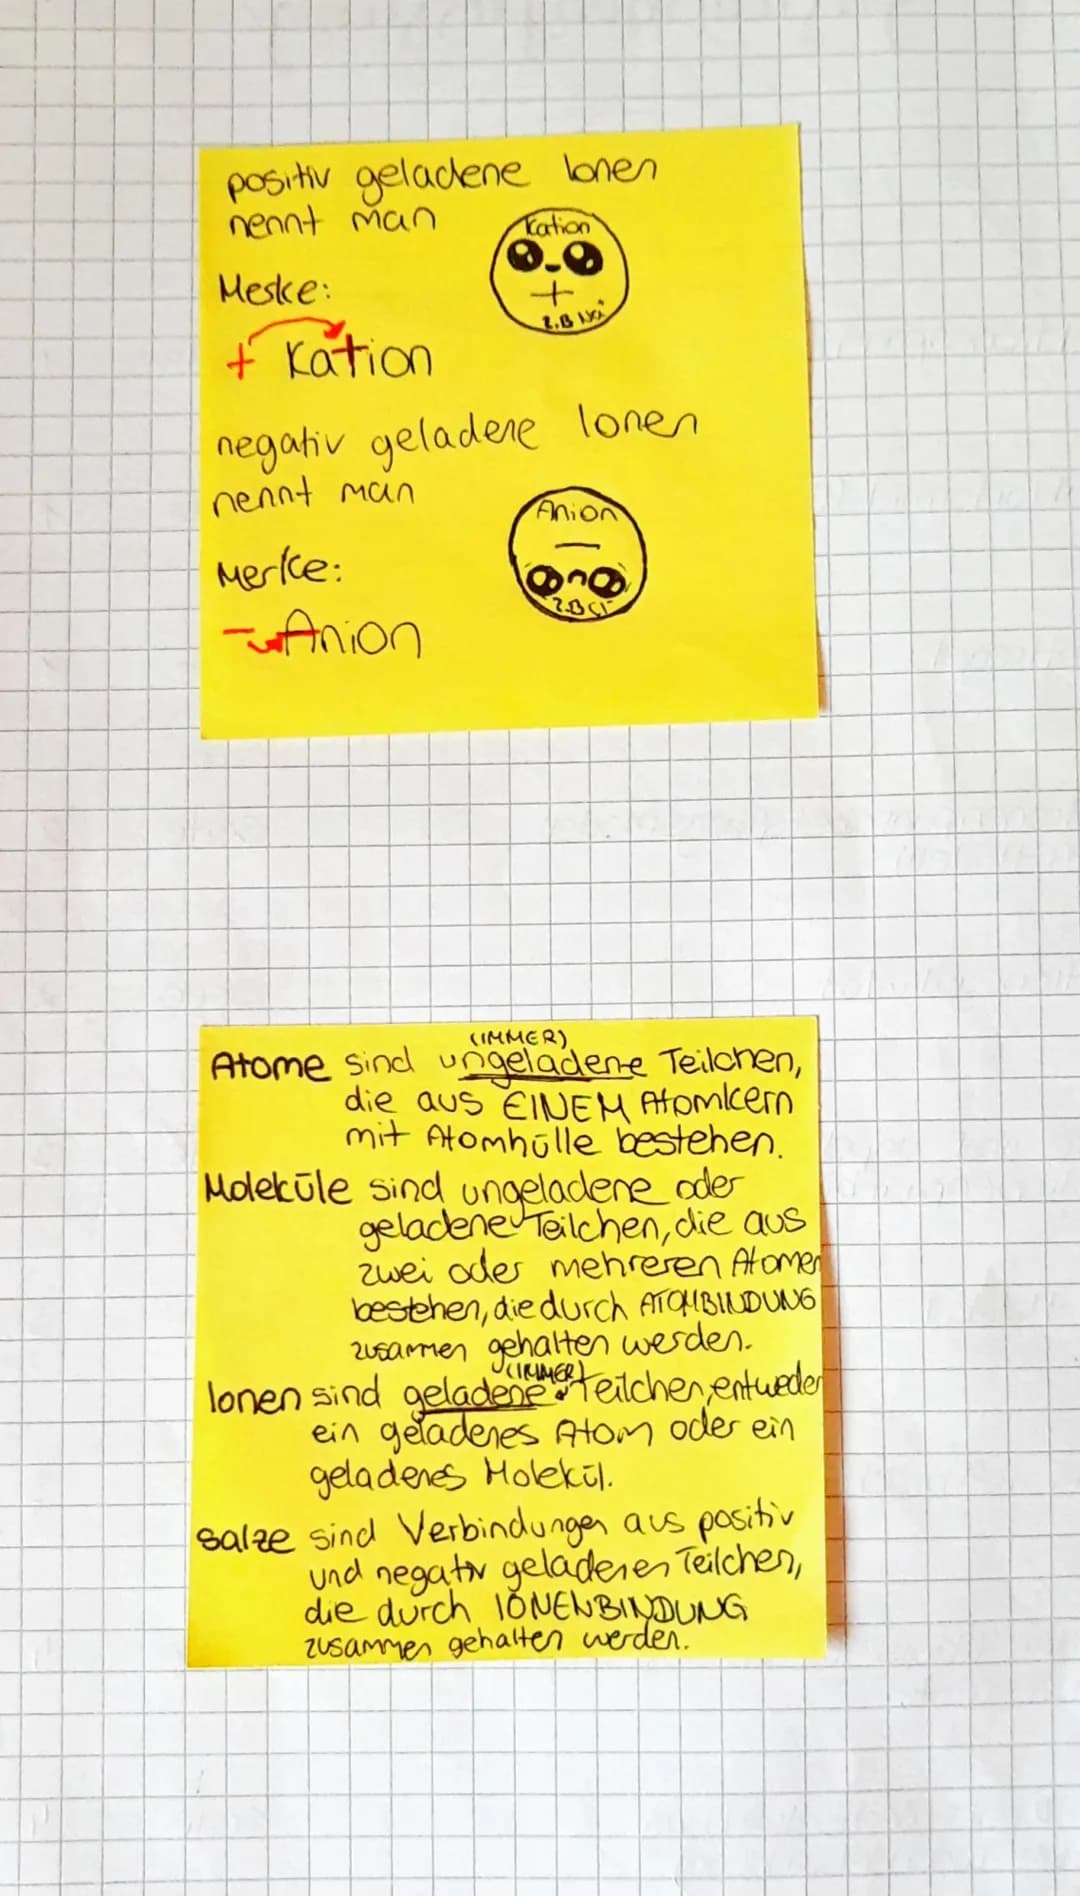 positiv geladene Ionen
nennt man
Kation
+
z.B Na⁺
Merke:
+ Kation
negativ geladene Ionen
nennt man
Anion
–
z.B Cl⁻
Merke:
- Anion
(IMMER)
Atome sind ungeladene Teilchen,
die aus EINEM Atomkern
mit Atomhülle bestehen.
Moleküle sind ungeladene oder
geladene Teilchen, die aus
zwei oder mehreren Atomen
bestehen, die durch ATOMBINDUNG
zusammen gehalten werden.
(IMMER)
Ionen sind geladene Teilchen, entweder
ein geladenes Atom oder ein
geladenes Molekül.
Salze sind Verbindungen aus positiv
und negativ geladenen Teilchen,
die durch IONENBINDUNG
zusammen gehalten werden.